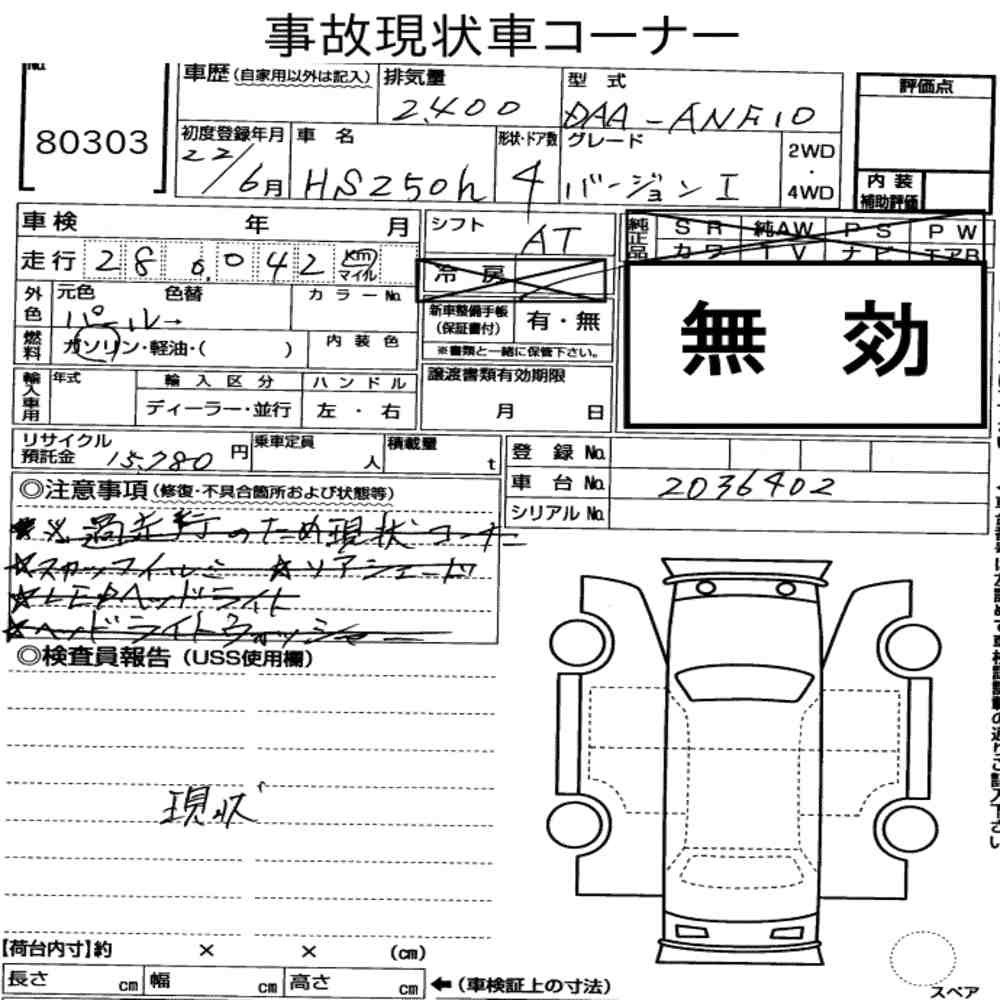 事故現状車コーナー
No.
80303
車歴(自家用以外は記入)
排気量
2,400
型 式
DAA-ANF10
評価点
初度登録年月
22/6月
車 名
HS250h
形状・ドア数
4
グレード
バージョン I
2WD
・
4WD
内 装
補助評価
車検 年 月
シフト
AT
純正品
S R 純AW P S P W
カワ T V ナビ エアB
走行 280,042 km マイル
冷 房
外色
元色 色替
カラーNo.
パール
新車整備手帳
(保証書付)
有・無
※書類と一緒に保管下さい。
無 効
燃料
ガソリン・軽油・( )
内 装 色
輸入車用
年式
輸 入 区 分
ハ ン ド ル
ディーラー・並行
左 ・ 右
譲渡書類有効期限
月 日
リサイクル
預託金 15,780 円
乗車定員
人
積載量
t
登 録 No.
車 台 No. 2036402
シリアル No.
◎注意事項(修復・不具合箇所および状態等)
※過走行のため現状コーナー
☆スカッフイルミ ☆リアシェード
☆LEDヘッドライト
☆ヘッドライトウォッシャー
◎検査員報告(USS使用欄)
現状
【荷台内寸】約 × × (cm)
長さ cm 幅 cm 高さ cm
←(車検証上の寸法)
スペア